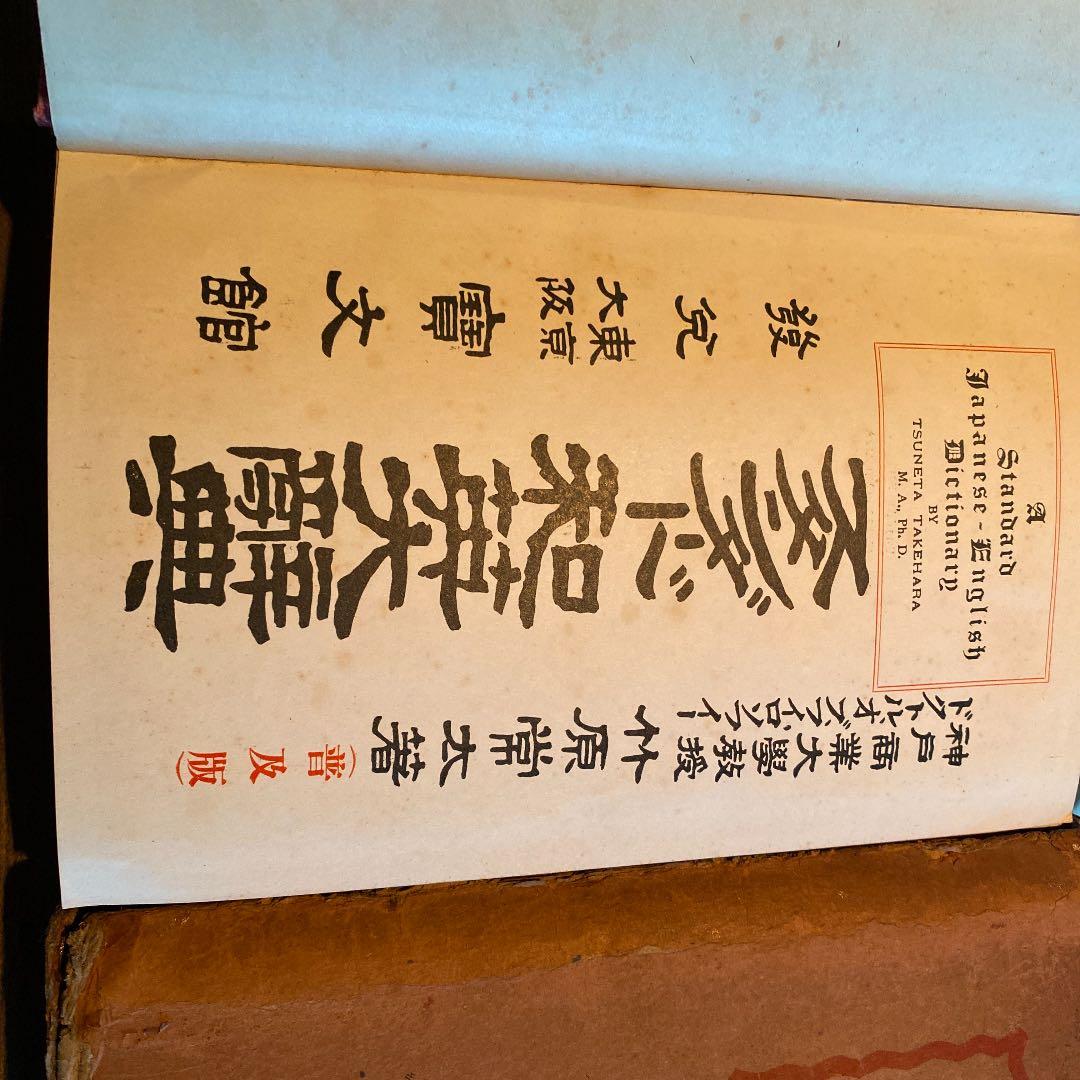 A
Standard
Japanese-English
Dictionary
BY
TSUNETA TAKEHARA
M. A., Ph. D.
神戸商業大學教授
ドクトルオブフィロソフィー
竹原常太著
(普及版)
スタンダード和英大辭典
發兌
東京
大阪
寶文館